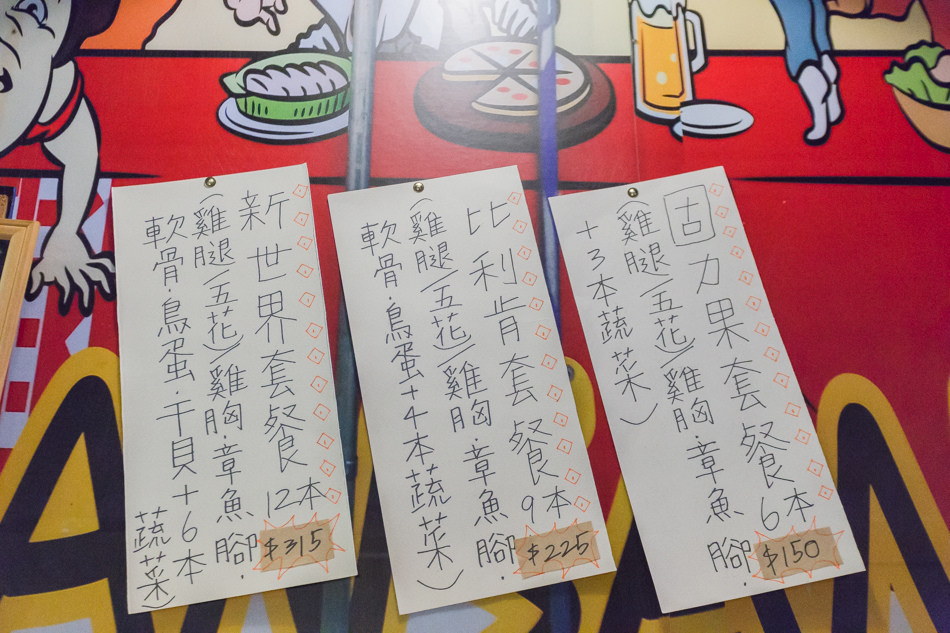 固力果套餐6本
$150
(雞腿/五花)/雞胸.章魚腳.
+3本蔬菜)
比利肯套餐9本
$225
(雞腿/五花)/雞胸.章魚腳.
軟骨.鳥蛋+4本蔬菜)
新世界套餐12本
$315
(雞腿/五花)/雞胸.章魚腳.
軟骨.鳥蛋.干貝+6本
蔬菜)